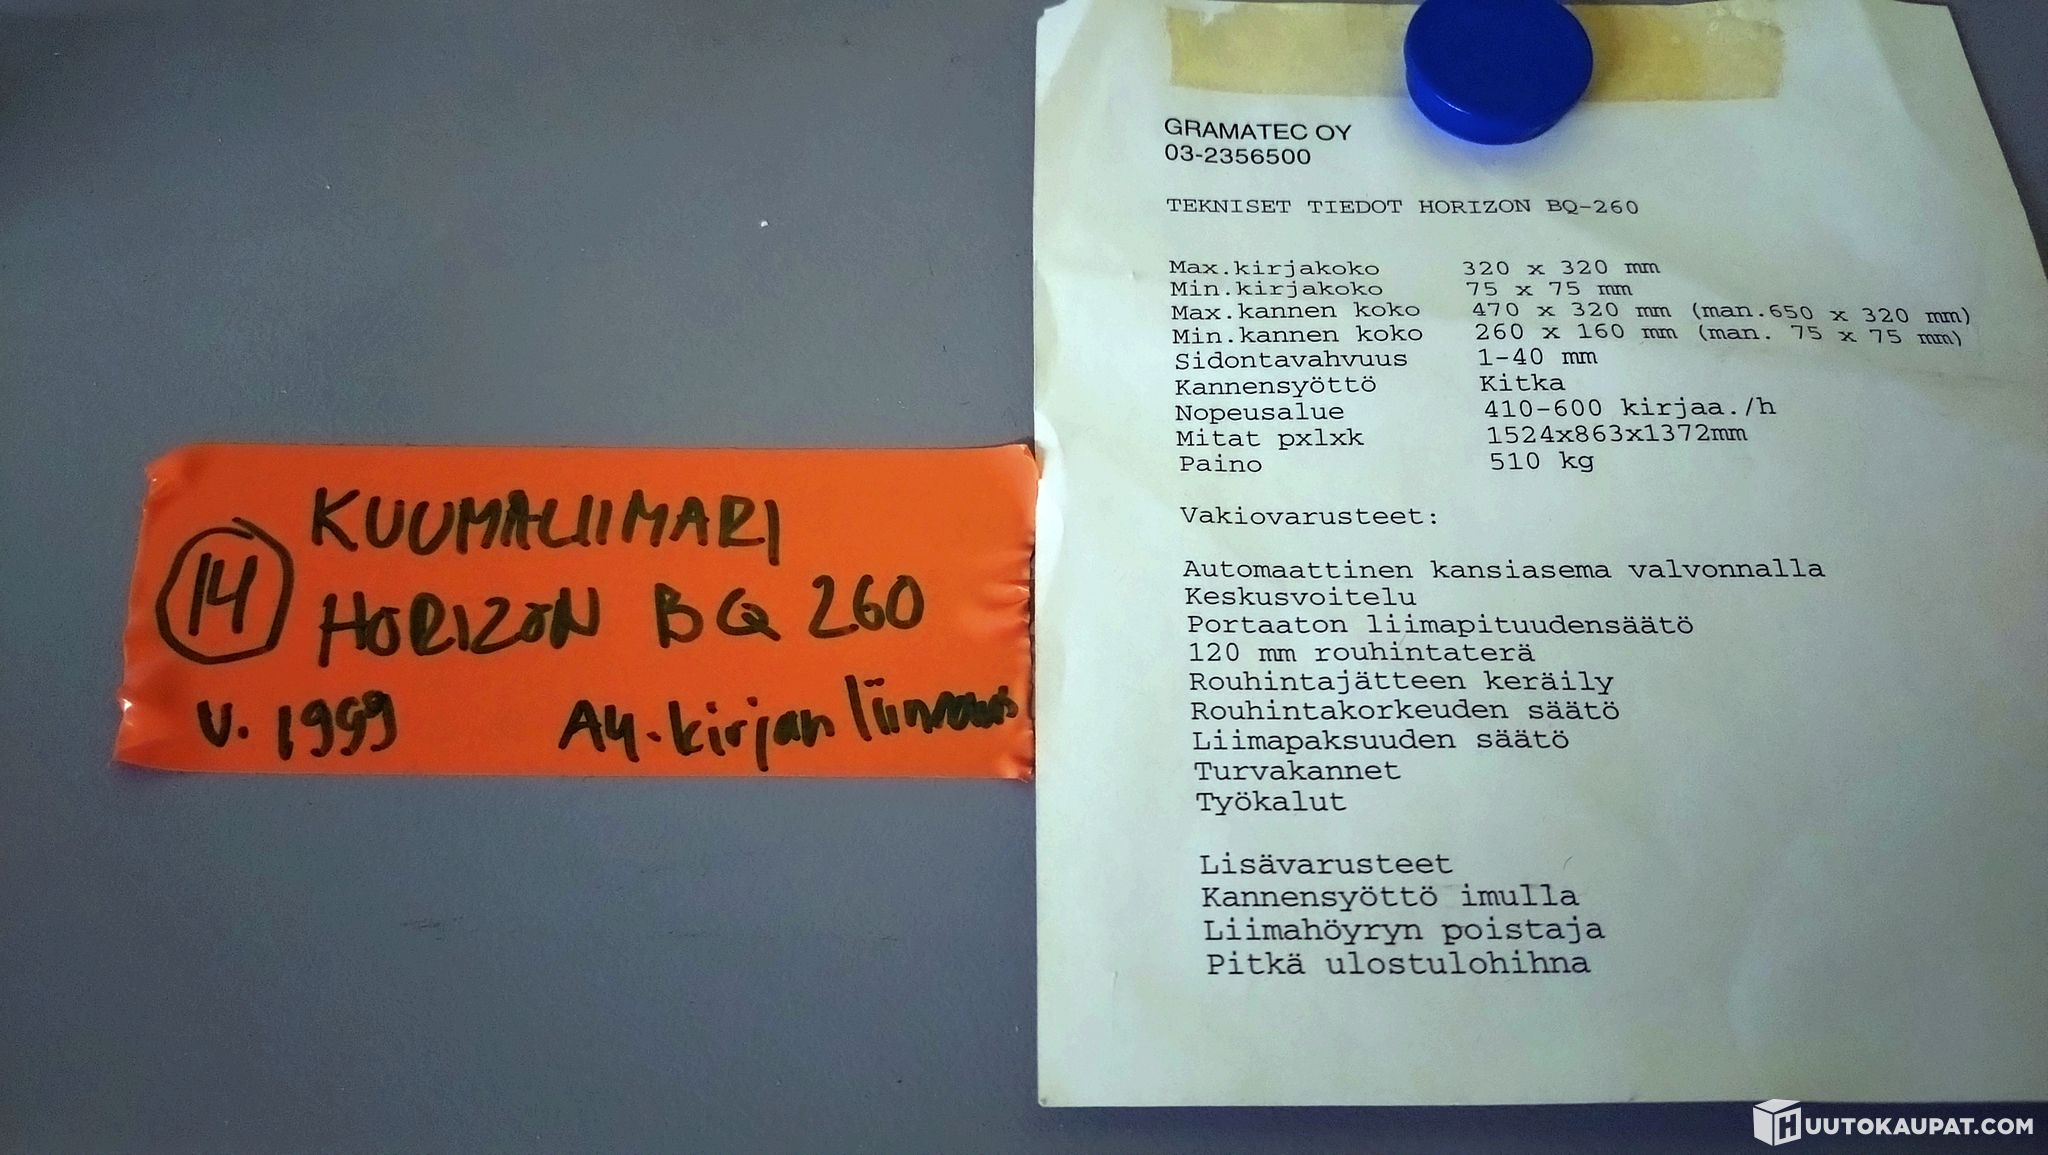 14
KUUMALIIMARI
HORIZON BQ 260
V. 1999 A4-kirjan liimaus
GRAMATEC OY
03-2356500
TEKNISET TIEDOT HORIZON BQ-260
Max.kirjakoko 320 x 320 mm
Min.kirjakoko 75 x 75 mm
Max.kannen koko 470 x 320 mm (man.650 x 320 mm)
Min.kannen koko 260 x 160 mm (man. 75 x 75 mm)
Sidontavahvuus 1-40 mm
Kannensyöttö Kitka
Nopeusalue 410-600 kirjaa./h
Mitat pxlxk 1524x863x1372mm
Paino 510 kg
Vakiovarusteet:
Automaattinen kansiasema valvonnalla
Keskusvoitelu
Portaaton liimapituudensäätö
120 mm rouhintaterä
Rouhintajätteen keräily
Rouhintakorkeuden säätö
Liimapaksuuden säätö
Turvakannet
Työkalut
Lisävarusteet
Kannensyöttö imulla
Liimahöyryn poistaja
Pitkä ulostulohihna
HUUTOKAUPAT.COM